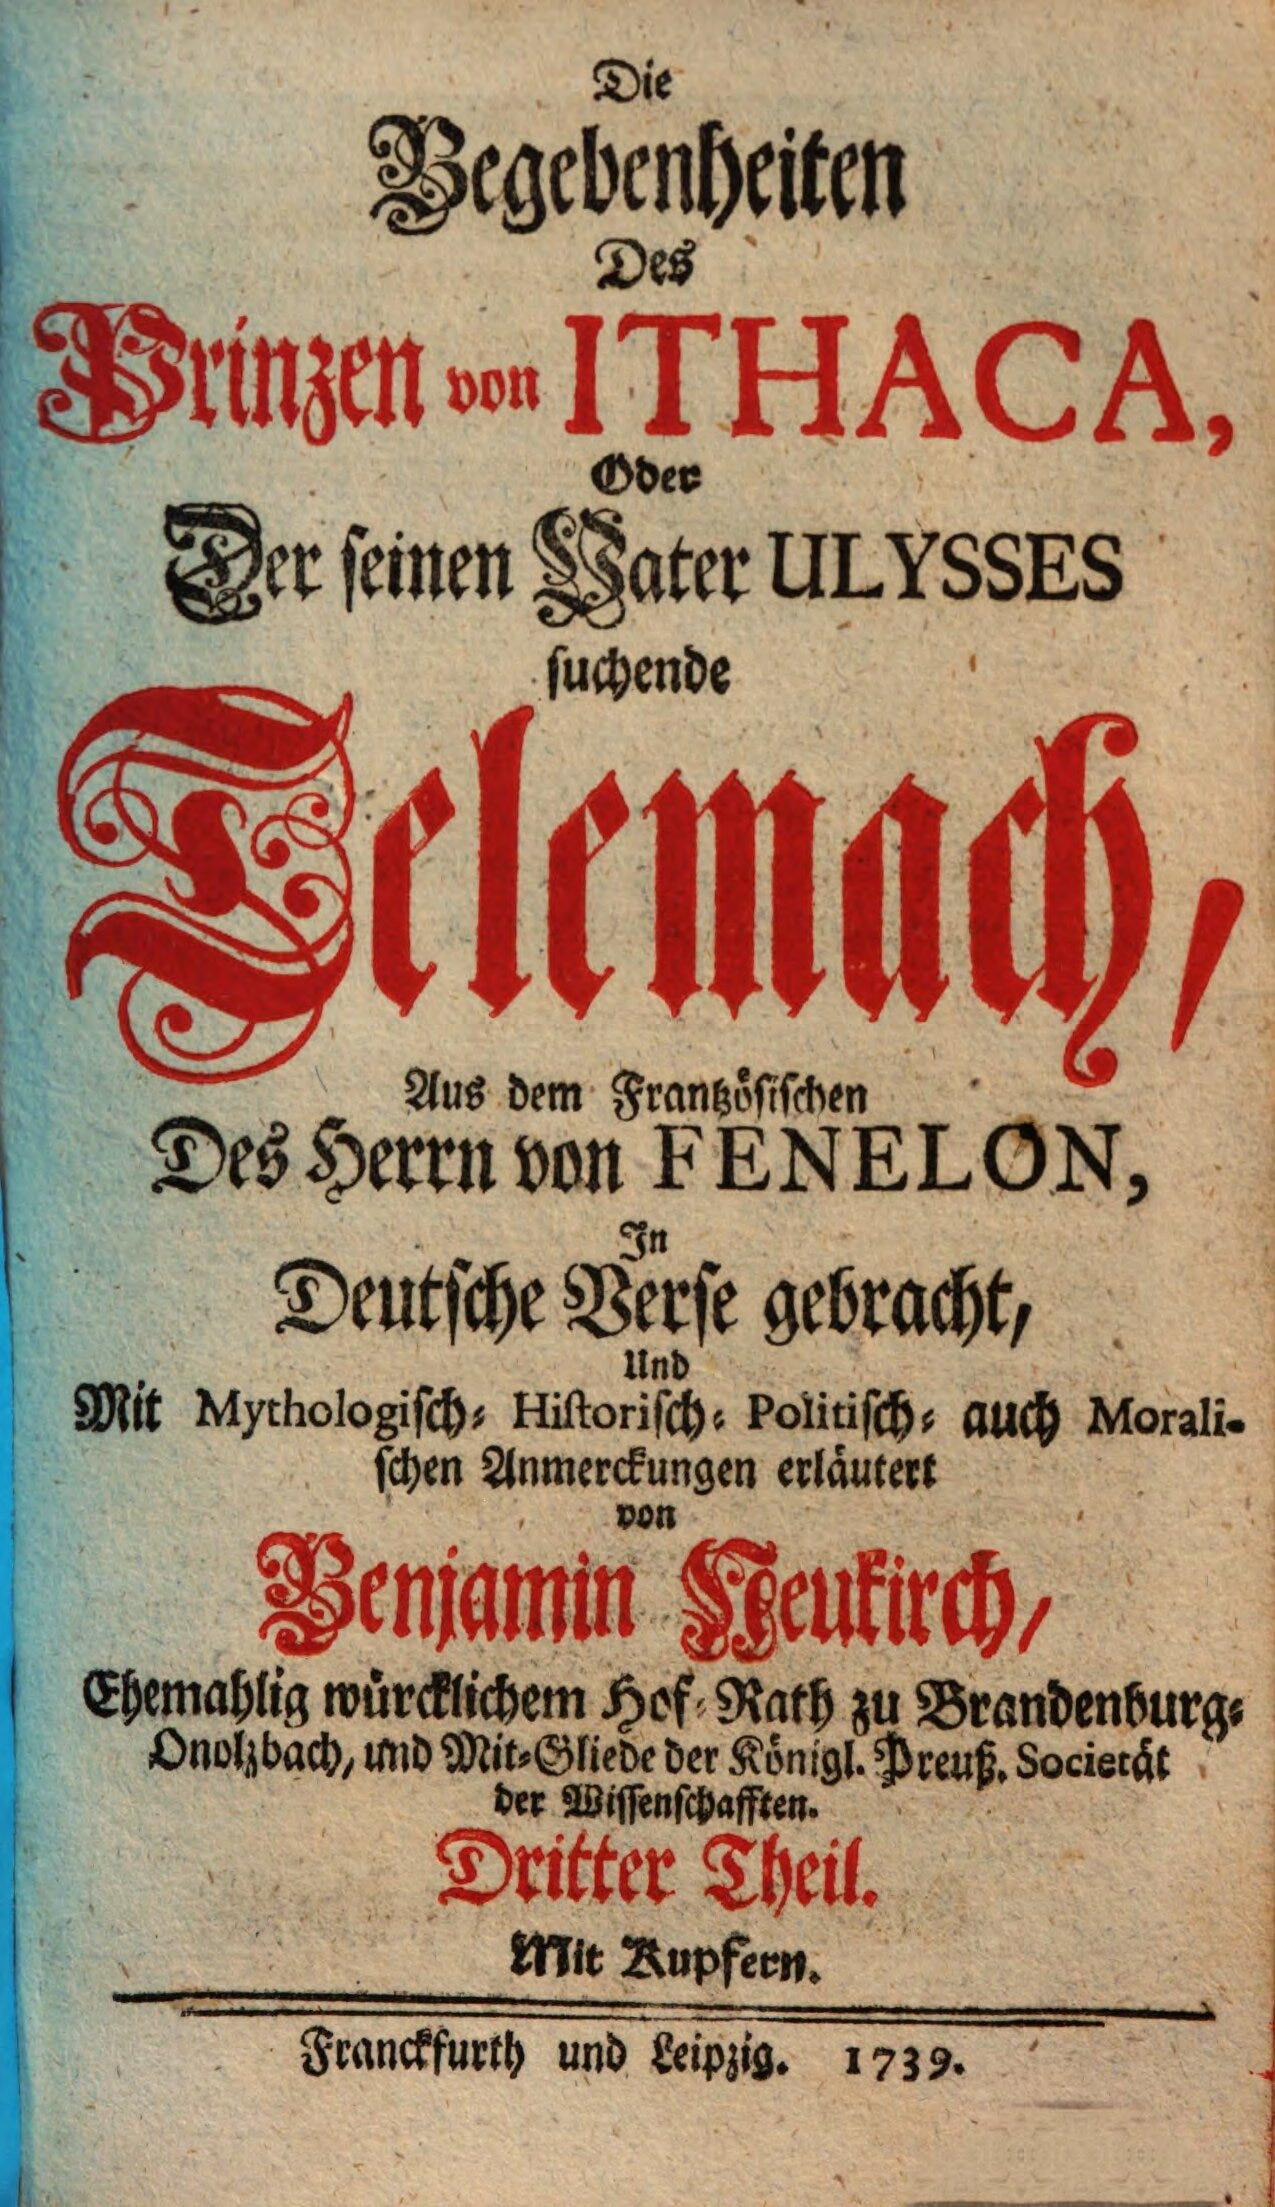 Die
Begebenheiten
Des
Prinzen von ITHACA,
Oder
Der seinen Vater ULYSSES
suchende
Telemach,
Aus dem Frantzösischen
Des Herrn von FENELON,
In
Deutsche Verse gebracht,
Und
Mit Mythologisch- Historisch- Politisch- auch Morali-
schen Anmerckungen erläutert
von
Benjamin Neukirch,
Ehemahlig würcklichem Hof-Rath zu Brandenburg-
Onolzbach, und Mit-Gliede der Königl. Preuß. Societät
der Wissenschafften.
Dritter Theil.
Mit Kupfern.
Franckfurth und Leipzig. 1739.